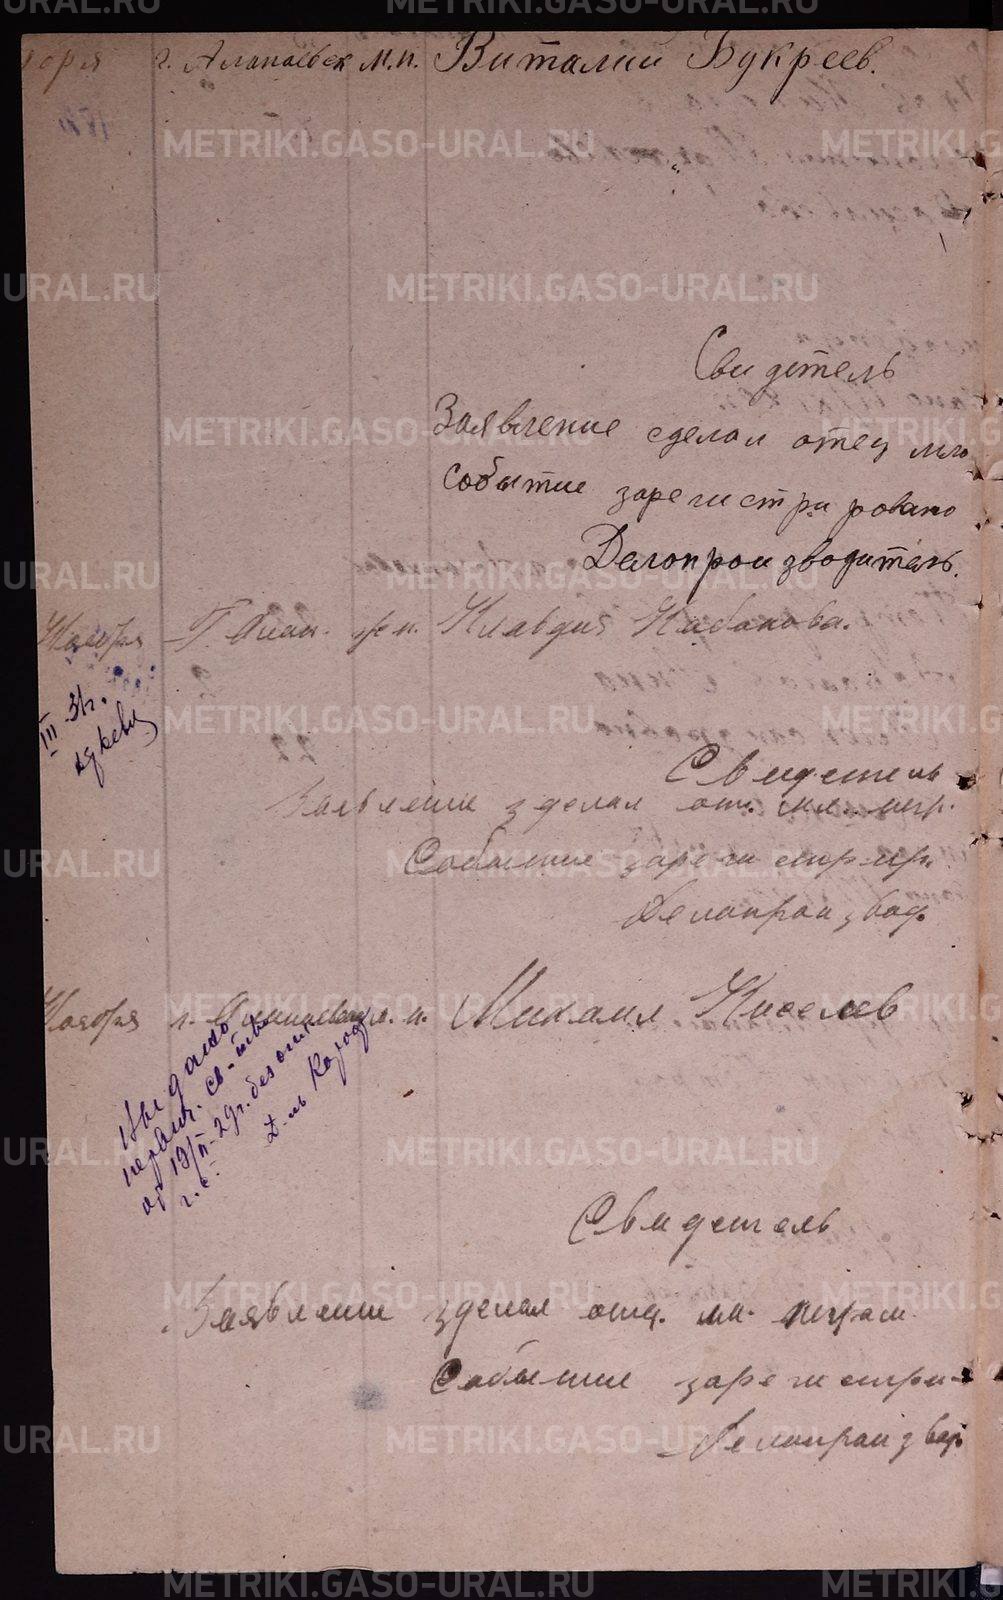 г. Алапаевск м.п. Виталий Букреев.
Свидетель
Заявление сделал отец мла
Событие зарегистрировано
Делопроизводитель.
Ноября Г. Алап. ж.п. Клавдия Кабакова.
III 31г.
Свидетель
Заявление зделал отц. мл.
Событие зарегистрир.
Делопроизвод.
Ноября г. Алапаевск м.п. Михаил Киселев
Выдано
св-тво
от 19/II-29г. без
г.с.
Д-ль
Свидетель
Заявление зделал отц. мл.
Событие зарегистри-
Делопроизвод
METRIKI.GASO-URAL.RU